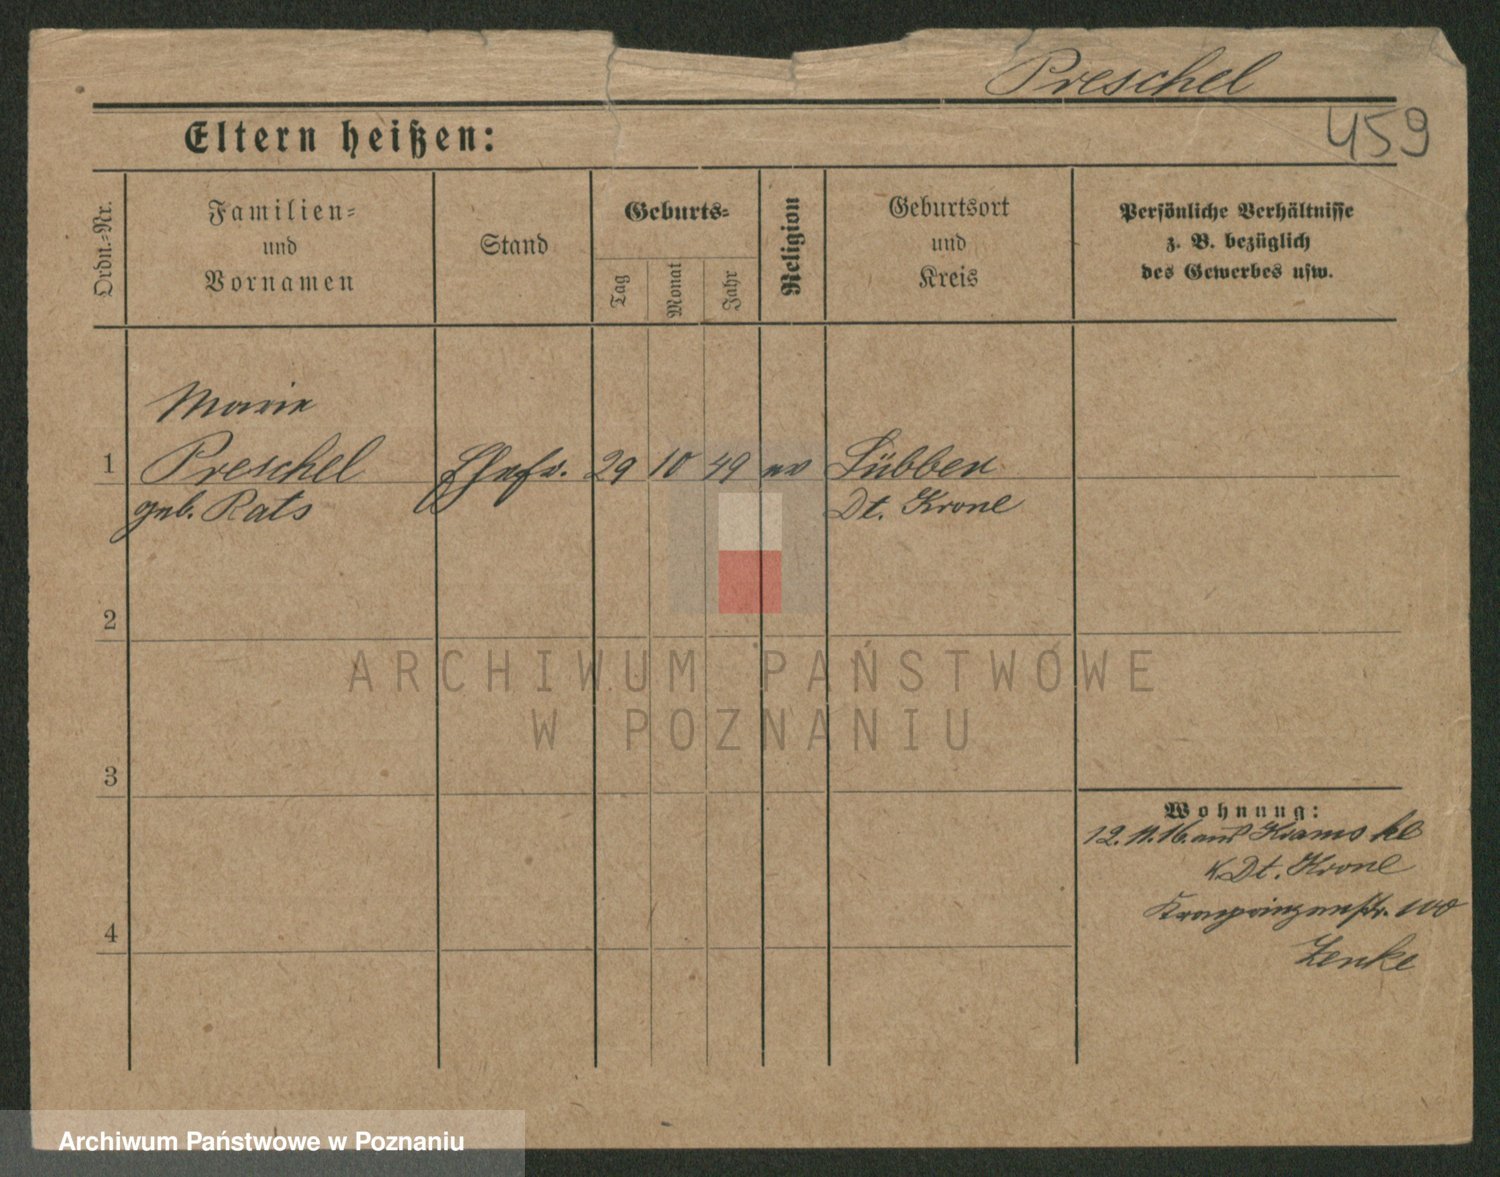 Preschel
459
Eltern heißen:
Ordn.=Nr.
Familien=
und
Vornamen
Stand
Geburts=
Tag
Monat
Jahr
Religion
Geburtsort
und
Kreis
Persönliche Verhältnisse
z. B. bezüglich
des Gewerbes usw.
Marie
1 Preschel Ehefr. 29 10 49 ev Lübben
geb. Rats Dt. Krone
2
3
4
Wohnung:
12. 11. 16. aus
K. Dt. Krone
Kronprinzenstr. 100
Zenke
ARCHIWUM PAŃSTWOWE
W POZNANIU
Archiwum Państwowe w Poznaniu